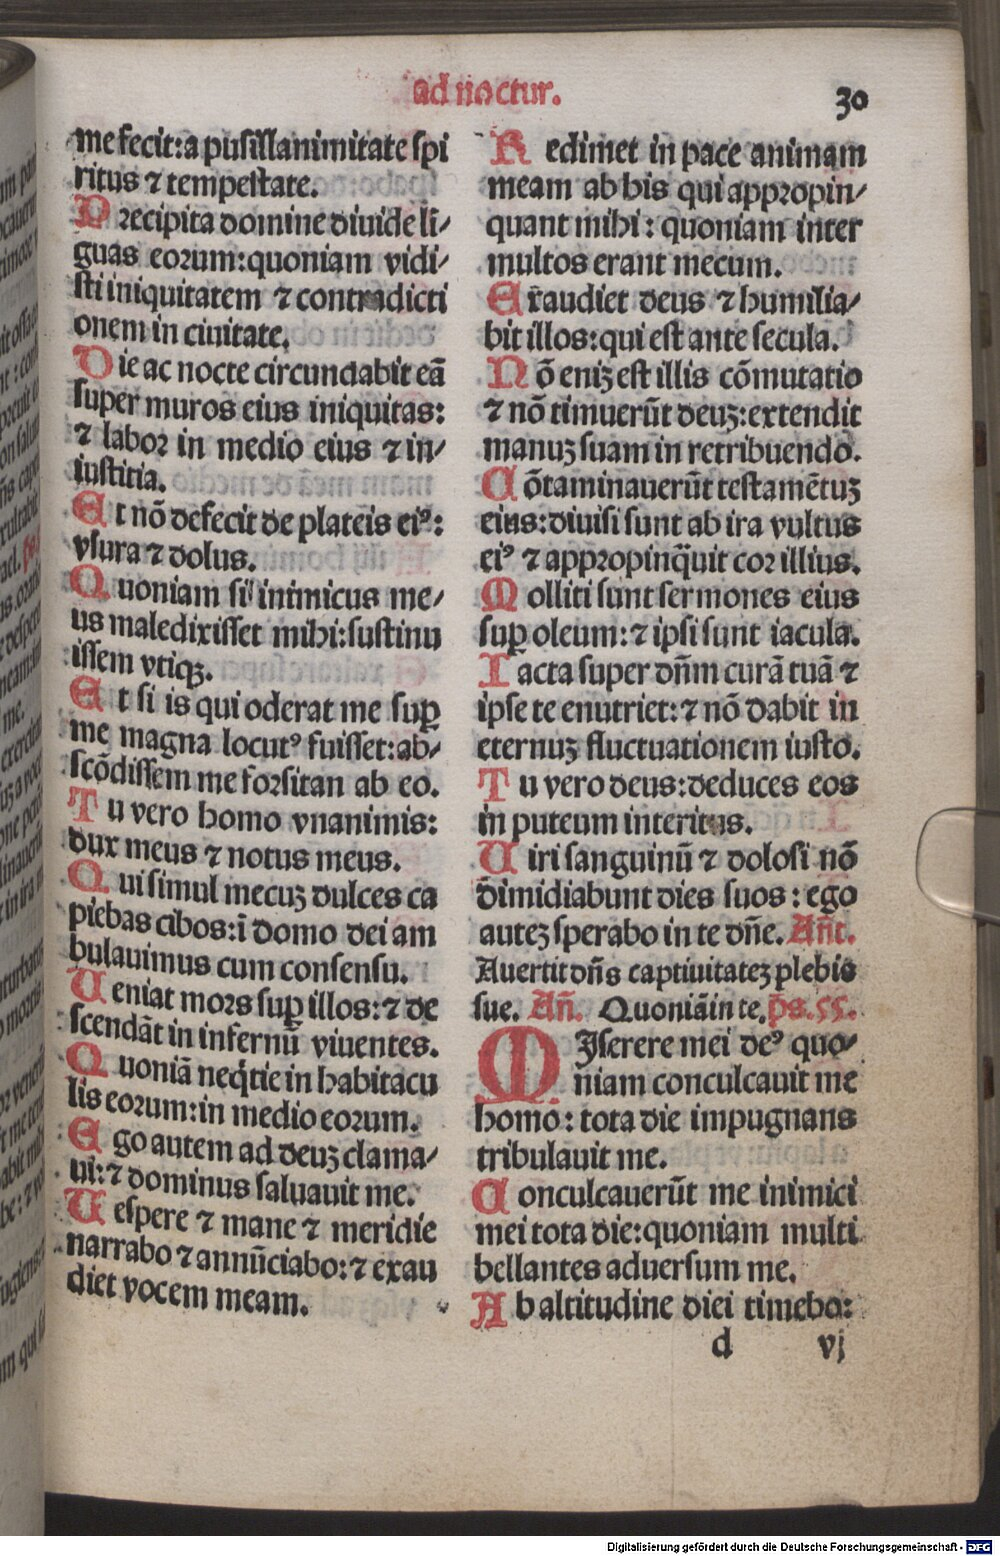 ad noctur.
30
me fecit: a pusillanimitate spi
ritus ⁊ tempestate.
Precipita domine diuide li/
guas eorum: quoniam vidi/
sti iniquitatem ⁊ contradicti
onem in ciuitate.
Die ac nocte circundabit eā
super muros eius iniquitas:
⁊ labor in medio eius ⁊ in/
iustitia.
Et nō defecit de plateis eiꝰ:
vsura ⁊ dolus.
Quoniam si inimicus me/
us maledixisset mihi: sustinu
issem vtiqꝫ.
Et si is qui oderat me suꝑ
me magna locutꝰ fuisset: ab/
scōdissem me forsitan ab eo.
Tu vero homo vnanimis:
dux meus ⁊ notus meus.
Qui simul mecuꝫ dulces ca
piebas cibos: ī domo dei am
bulauimus cum consensu.
Ueniat mors suꝑ illos: ⁊ de
scendāt in infernū viuentes.
Quoniā neq̄tie in habitacu
lis eorum: in medio eorum.
Ego autem ad deuꝫ clama/
ui: ⁊ dominus saluauit me.
Uespere ⁊ mane ⁊ meridie
narrabo ⁊ annūciabo: ⁊ exau
diet vocem meam.
Redimet in pace animam
meam ab his qui appropin/
quant mihi: quoniam inter
multos erant mecum.
Exaudiet deus ⁊ humilia/
bit illos: qui est ante secula.
Nō eniꝫ est illis cōmutatio
⁊ nō timuerūt deuꝫ: extendit
manuꝫ suam in retribuendo.
Cōtaminauerūt testamētuꝫ
eius: diuisi sunt ab ira vultus
eiꝰ ⁊ appropinq̄uit cor illius.
Molliti sunt sermones eius
suꝑ oleum: ⁊ ipsi sunt iacula.
Iacta super dn̄m curā tuā ⁊
ipse te enutriet: ⁊ nō dabit in
eternuꝫ fluctuationem iusto.
Tu vero deus: deduces eos
in puteum interitus.
Uiri sanguinū ⁊ dolosi nō
dimidiabunt dies suos: ego
auteꝫ sperabo in te dn̄e. An̄t.
Auertit dn̄s captiuitateꝫ plebis
sue. An̄. Quoniā in te. p̄s. 55.
MIserere mei deꝰ quo/
niam conculcauit me
homo: tota die impugnans
tribulauit me.
Conculcauerūt me inimici
mei tota die: quoniam multi
bellantes aduersum me.
Ab altitudine diei timebo:
d vj
Digitalisierung gefördert durch die Deutsche Forschungsgemeinschaft - DFG